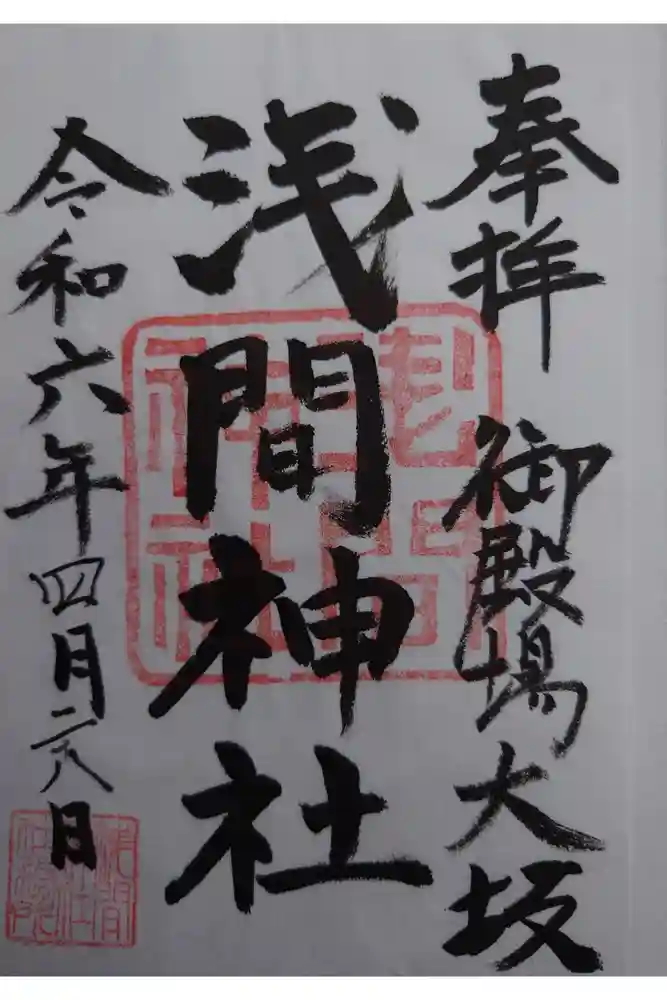 奉拝 御殿場大坂
浅間神社
令和六年四月二八日
浅間神社